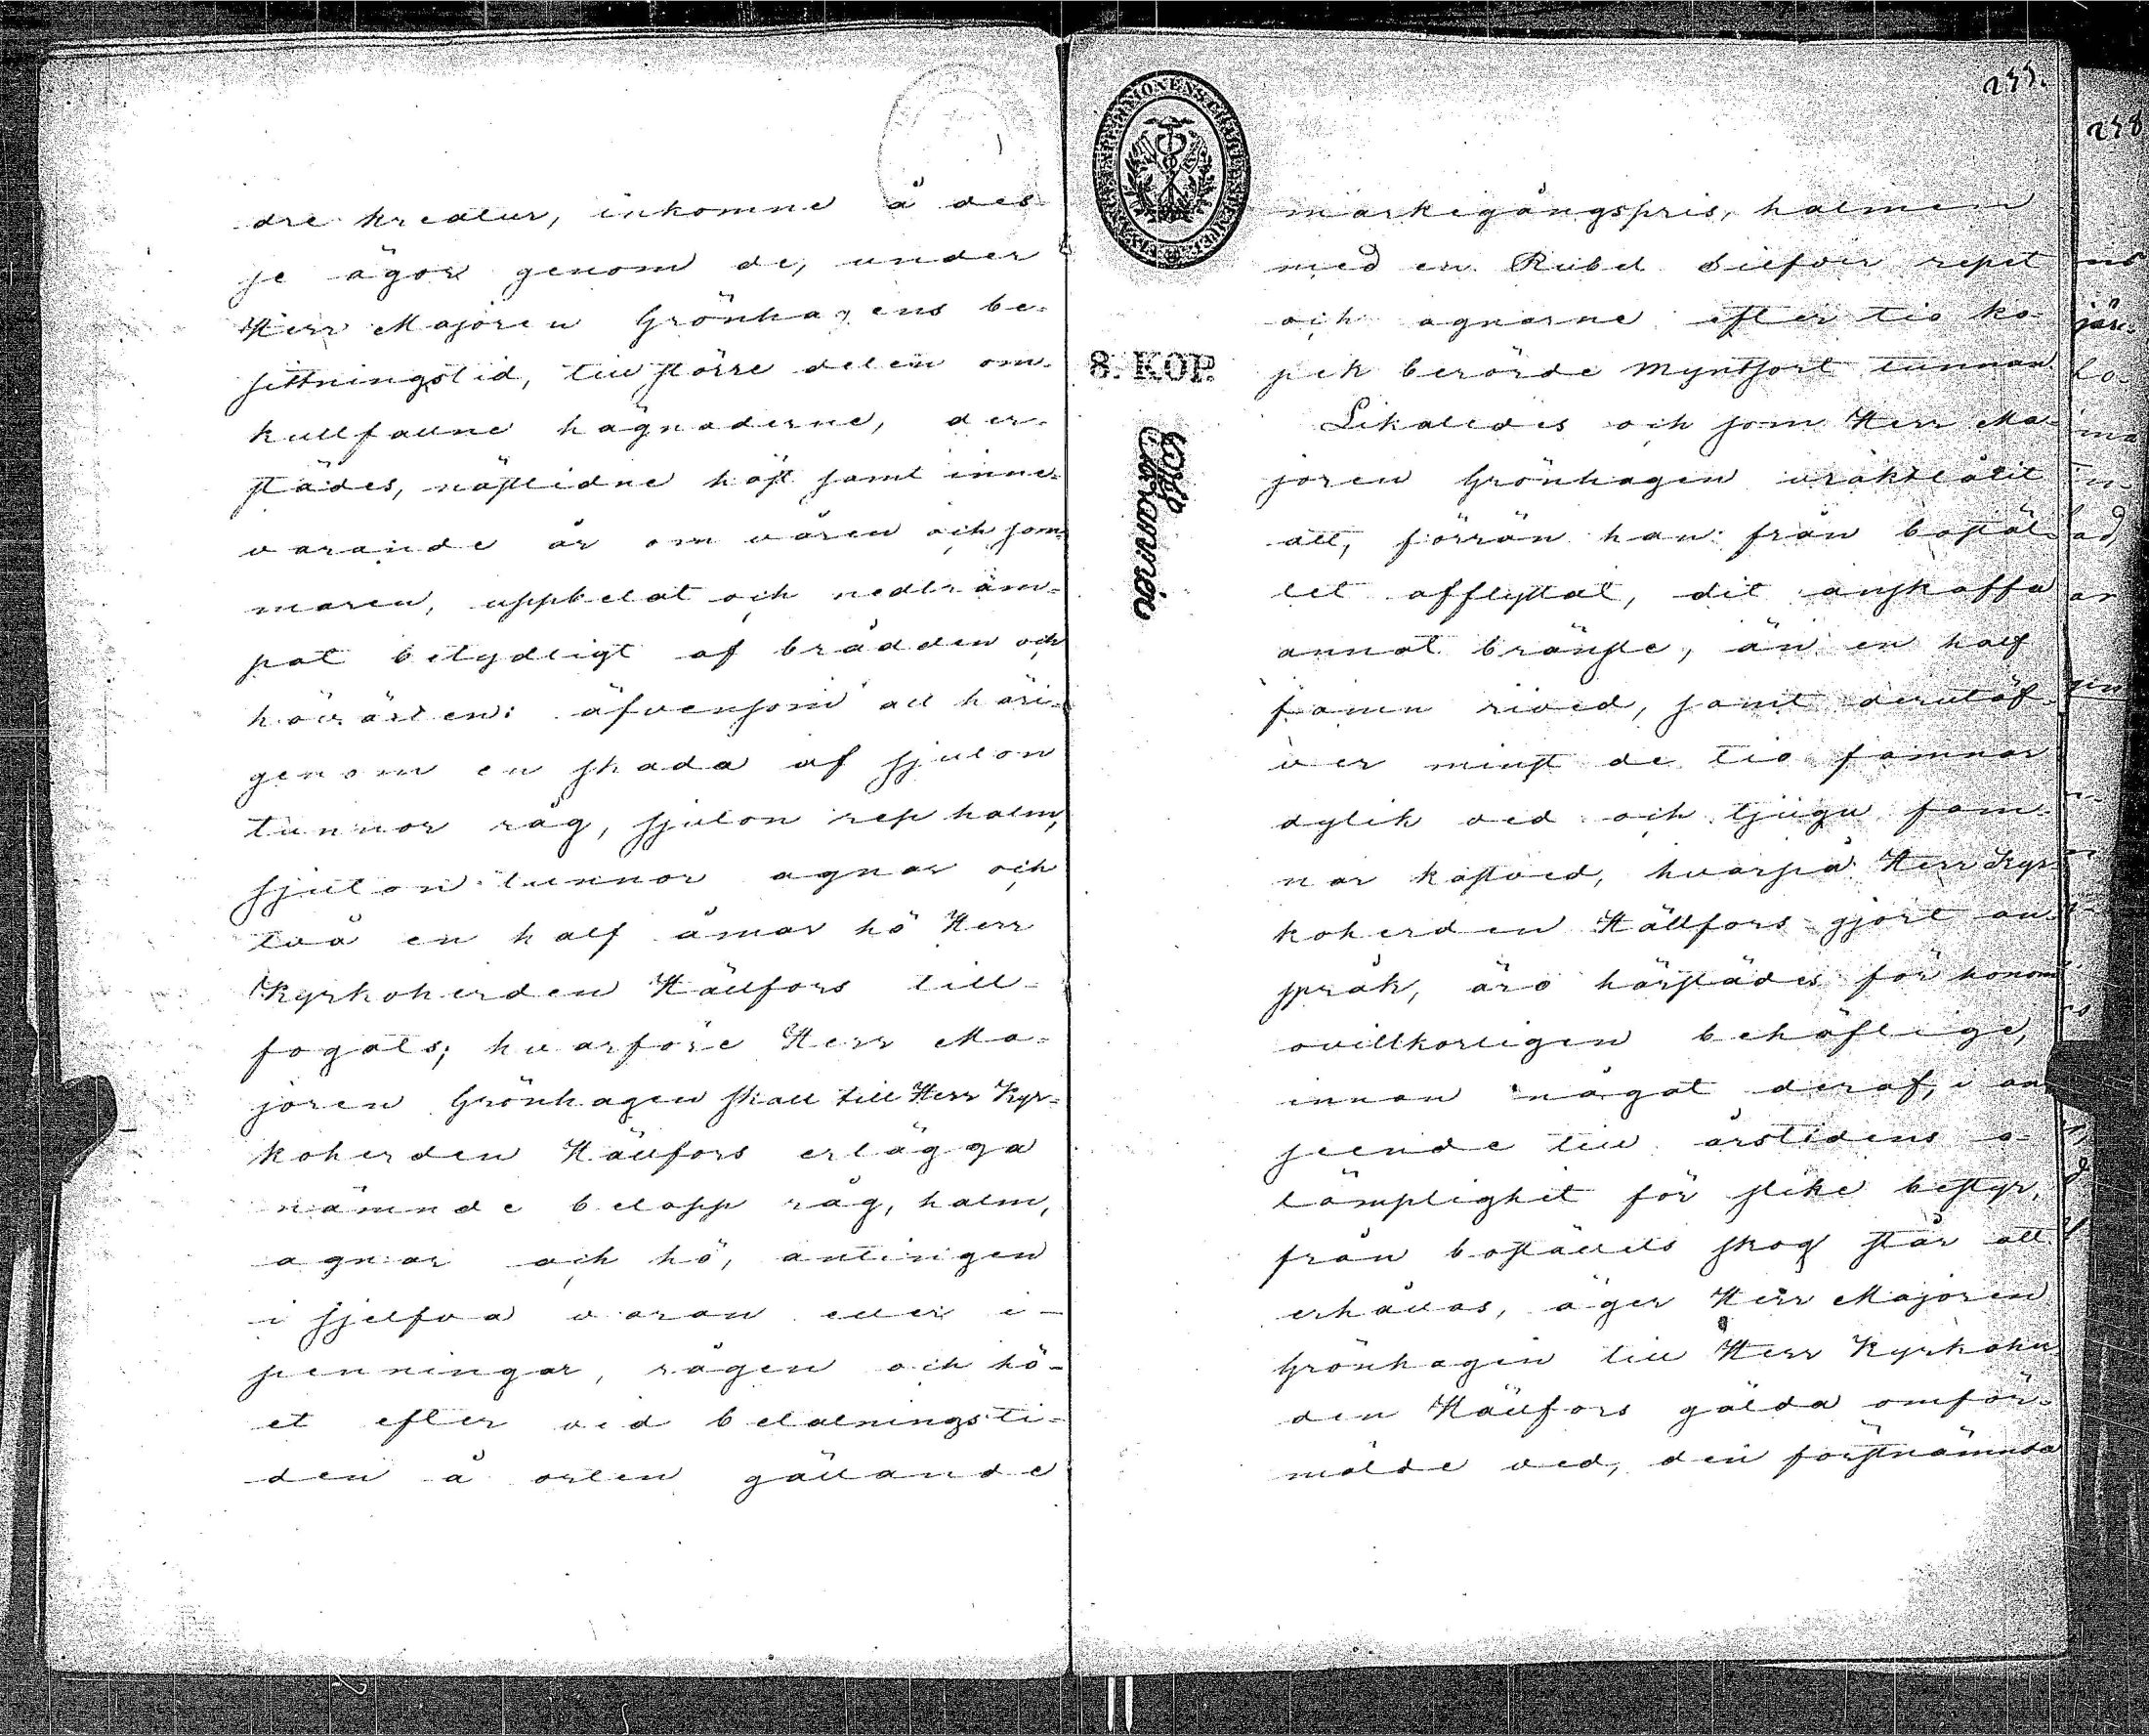 dre kreatur, inkomne å des
se ägor genom de, under
Herr Majoren Grönhagens be-
sittningstid, till större delen om-
kullfallne hägnaderne, der-
städes, nästlidne höst samt inne-
varande år om våren och som-
maren, uppbetat och nedtram-
pat betydligt af brådden och
höväxten: äfvensom att häri-
genom en skada af sjuton
tunnor råg, sjuton rep halm,
sjuton tunnor agnar och
två en half åmar hö Herr
Kyrkoherden Hällfors till-
fogats; hvarföre Herr Ma-
joren Grönhagen skall till Herr Kyr-
koherden Hällfors erlägga
nämnde belopp råg, halm,
agnar och hö, antingen
i sjelfva varan eller i
penningar, rågen och hö-
et efter vid betalningsti-
den å orten gällande
255.
markegångspris, halmen
med en Rubel Silfver repet
och agnarne efter tio ko-
8. KOP.
pek berörde myntsort tunnan.
Likaledes och som Herr Ma-
joren Grönhagen uraktlåtit
att, förrän han från bostäl-
let afflyttat, dit anskaffa
annat bränsle, än en half
famn rived, samt derutöf-
ver minst de tio famnar
dylik ved och tjugu fam-
nar kastved, hvarpå Herr Kyr-
koherden Hällfors gjort an-
språk, äro härstädes för honom
ovillkorligen behöflige,
innan något deraf, i an-
seende till årstidens o-
lämplighet för slike bestyr,
från boställets skog står att
erhållas, äger Herr Majoren
Grönhagen till Herr Kyrkoher-
den Hällfors gälda omför-
mälde ved, den förstnämnda
258